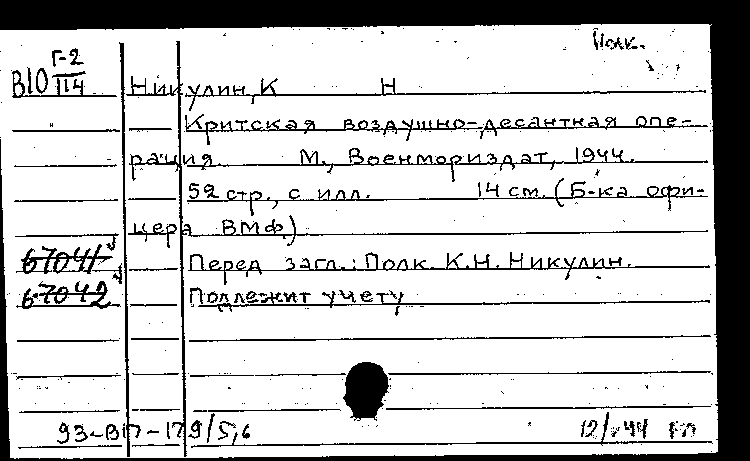 Полк.
Г-2
В10 П4 Никулин, К Н
Критская воздушно-десантная опе-
рация М., Военмориздат, 1944.
52 стр., с илл. 14 см. (Б-ка офи-
цера ВМФ)
67041 Перед загл.: Полк. К.Н. Никулин.
67042 Подлежит учету
93-ВП-179/5,6